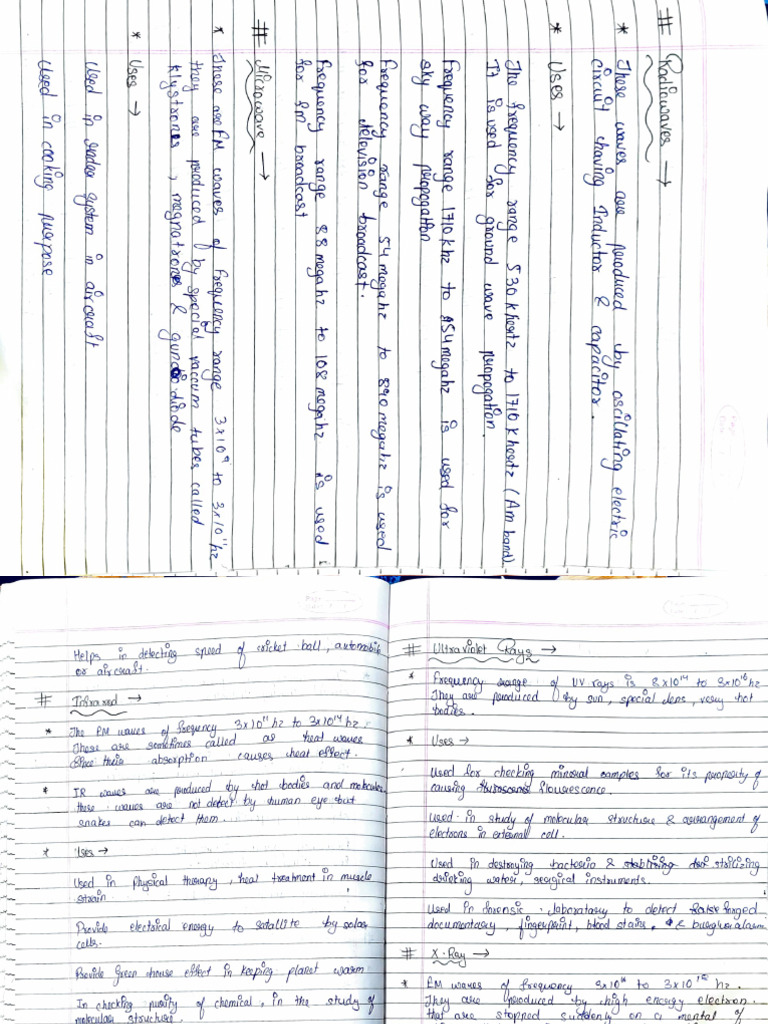 # Radiowaves →
* These waves are produced by oscillating electric
circuit having Inductor & capacitor.
* Uses →
The frequency range 530 k hertz to 1710 k hertz (Am band)
It is used for ground wave propogation.
Frequency range 1710 khz to 54 megahz is used for
sky way propogation
Frequency range 54 megahz to 890 megahz is used
for television broadcast.
Frequency range 88 megahz to 108 megahz is used
for fm broadcast
# Microwave →
* These are EM waves of frequency range 3x10⁹ to 3x10¹¹hz
they are produced by special vaccum tubes called
klystrones, magnatrones & gun diode
* Uses →
Used in radar system in aircraft
Used in cooking purpose
Helps in detecting speed of cricket ball, automobile
or aircraft.
# Infrared →
* The EM waves of frequency 3x10¹¹hz to 3x10¹⁴hz.
These are sometimes called as heat waves
since their absorption causes heat effect.
* IR waves are produced by hot bodies and molecules
these waves are not detect by human eye but
snakes can detect them.
* Uses →
Used in physical therapy, heal treatment in muscle
strain.
Provide electrical energy to satallite by solar
cells.
Provide Green house effect in keeping planet warm.
In checking purity of chemical, in the study of
molecular structure.
# Ultraviolet Rays →
* Frequency range of UV rays is 8x10¹⁴ to 3x10¹⁶hz
They are produced by sun, special lens, very hot
bodies.
* Uses →
Used for checking mineral samples for its property of
causing flourescence.
Used in study of molecular structure & arrangement of
electrons in external cell.
Used in destroying bacteria & strilizing
drinking water, seorgical instruments.
Used in forensic laboratary to detect forged
documentary, fingerprint, blood stains, & burglur alarm.
# X-Ray →
* EM waves of frequency to 3x10¹⁹ hz.
They are produced by high energy electron
that are stopped suddenly on a mental of